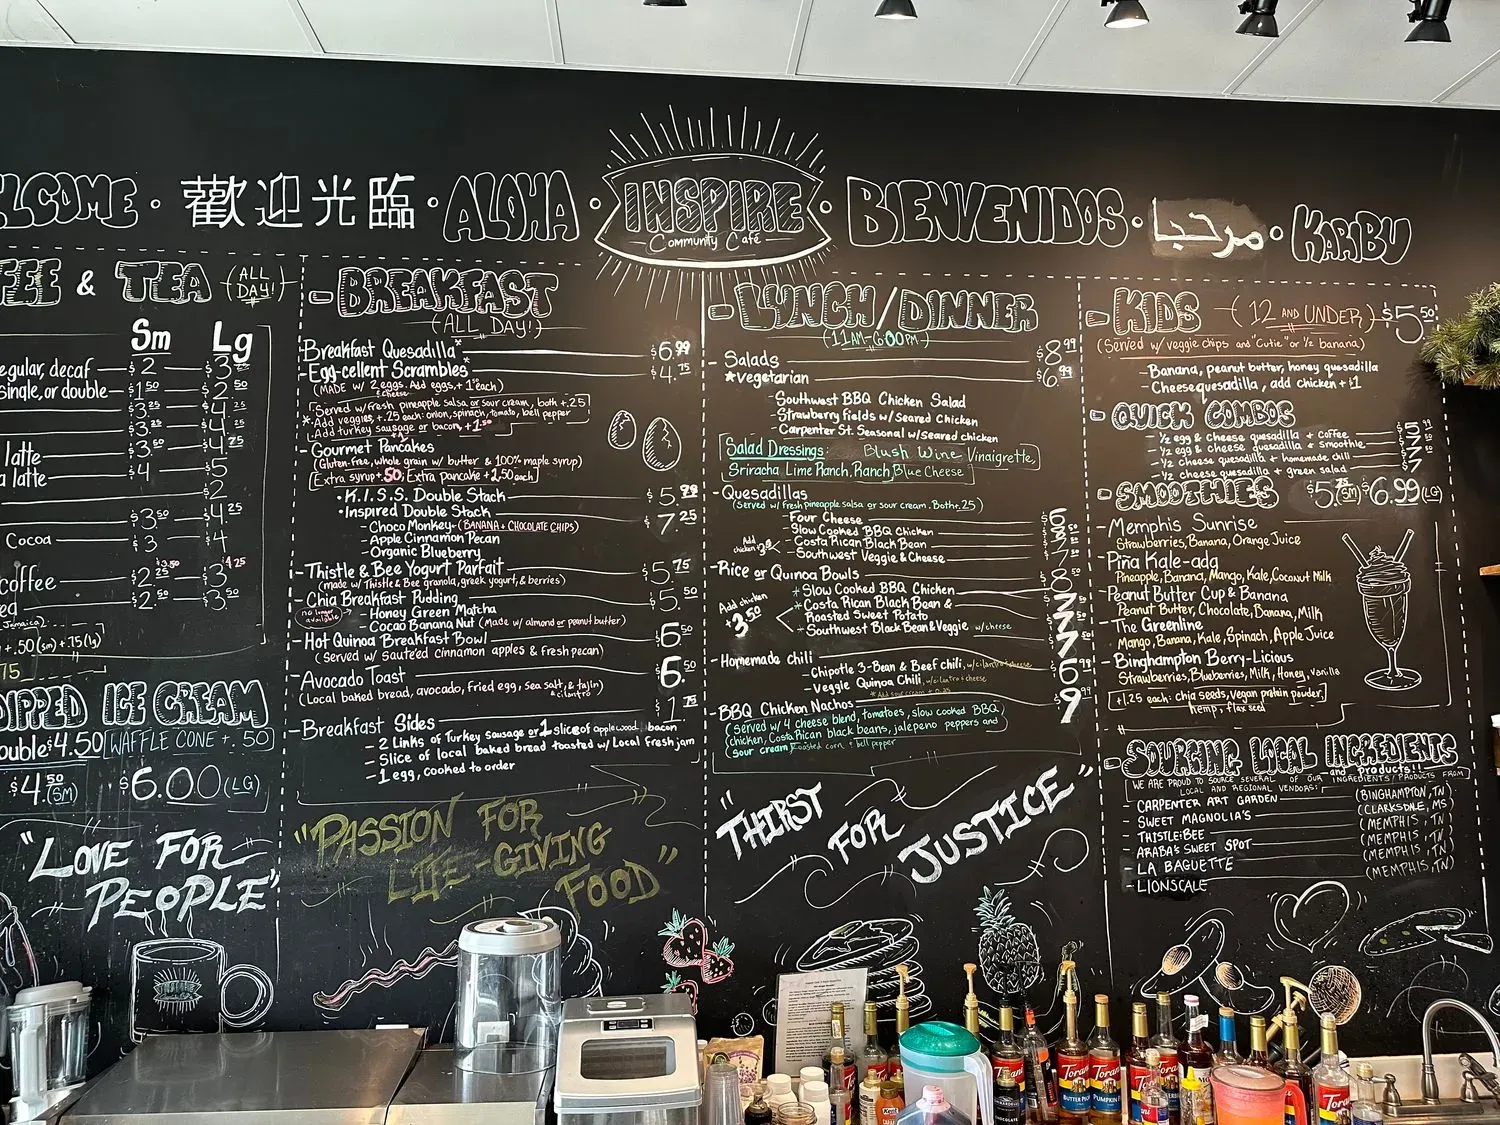 LCOME · 歡迎光臨 · ALOHA · INSPIRE · BIENVENIDOS · مرحبا · KARIBU
Community Café
& TEA (ALL DAY!)
Sm Lg
egular, decaf — $2 — $3
single, or double — $1.50 — $2.50
$3.25 — $4.25
$3.25 — $4.25
latte — $3.50 — $4.75
a latte — $4 — $5
$2
$3.50 — $4.25
Cocoa — $3 — $4
coffee — $2 — $3
$2.50 — $3.50
Jamaica
+.50(sm)+.75(lg)
75
DIPPED ICE CREAM
ouble $4.50 WAFFLE CONE +.50
$4.50 (SM) $6.00 (LG)
"LOVE FOR
PEOPLE"
BREAKFAST
(ALL DAY!)
Breakfast Quesadilla* $6.99
Egg-cellent Scrambles* $4.75
(MADE w/ 2 eggs. Add eggs, + 1 each)
& cheese
Served w/ fresh pineapple salsa or sour cream, both +.25
*Add veggies, +.25 each: onion, spinach, tomato, bell pepper
Add turkey sausage or bacon, +1.50
Gourmet Pancakes
(Gluten-free, whole grain w/ butter & 100% maple syrup)
Extra syrup +.50; Extra pancake +2.50 each
· K.I.S.S. Double Stack $5.99
· Inspired Double Stack $7.25
- Choco Monkey - (BANANA + CHOCOLATE CHIPS)
- Apple Cinnamon Pecan
- Organic Blueberry
- Thistle & Bee Yogurt Parfait $5.75
(made w/ Thistle & Bee granola, greek yogurt, & berries)
- Chia Breakfast Pudding $5.50
no longer available
- Honey Green Matcha
- Cocao Banana Nut (Made w/ almond or peanut butter)
- Hot Quinoa Breakfast Bowl $6.50
(Served w/ Sauteed cinnamon apples & fresh pecan)
- Avocado Toast $6.50
(Local baked bread, avocado, fried egg, sea salt, & tajin)
& cilantro
- Breakfast Sides $1.75
- 2 Links of Turkey sausage or 1 slice of applewood bacon
- Slice of local baked bread toasted w/ Local Fresh jam
- 1 egg, cooked to order
"PASSION FOR
LIFE-GIVING
FOOD"
LUNCH/DINNER
(11AM-6:00PM)
- Salads $8.99
*Vegetarian $6.99
- Southwest BBQ Chicken Salad
- Strawberry Fields w/ Seared Chicken
- Carpenter St. Seasonal w/ seared chicken
Salad Dressings: Blush Wine Vinaigrette,
Sriracha Lime Ranch, Ranch, Blue Cheese
- Quesadillas
(served w/ fresh pineapple salsa or sour cream. Both +.25)
- Four Cheese
- Slow Cooked BBQ Chicken
- Costa Rican Black Bean
- Southwest Veggie & Cheese
Add chicken
- Rice or Quinoa Bowls
+ Slow Cooked BBQ Chicken
+ Costa Rican Black Bean &
Roasted Sweet Potato
- Southwest Black Bean & Veggie w/ cheese
Add chicken +3.50
- Homemade chili
- Chipotle 3-Bean & Beef chili, w/ cilantro + cheese
- Veggie Quinoa Chili, w/ cilantro + cheese
- BBQ Chicken Nachos 9
(served w/ 4 cheese blend, tomatoes, slow cooked BBQ
chicken, Costa Rican black beans, jalapeno peppers and
sour cream, Roasted corn + bell pepper
"THIRST
FOR
JUSTICE"
KIDS (12 AND UNDER) $5.50
(Served w/ veggie chips and "Cutie" or ½ banana)
- Banana, peanut butter, honey quesadilla
- Cheese quesadilla, add chicken +$1
QUICK COMBOS
- ½ egg & cheese quesadilla + coffee
- ½ egg & cheese quesadilla + smoothie
- ½ cheese quesadilla + homemade chili
- ½ cheese quesadilla + green salad
SMOOTHIES $5.75 (SM) $6.99 (LG)
- Memphis Sunrise
Strawberries, Banana, Orange Juice
- Piña Kale-ada
Pineapple, Banana, Mango, Kale, Coconut Milk
- Peanut Butter Cup & Banana
Peanut Butter, Chocolate, Banana, Milk
- The Greenline
Mango, Banana, Kale, Spinach, Apple Juice
- Binghampton Berry-Licious
Strawberries, Blueberries, Milk, Honey, Vanilla
+1.25 each: chia seeds, vegan protein powder,
hemp, flax seed
SOURCING LOCAL INGREDIENTS
and Products!!
WE ARE PROUD TO SOURCE SEVERAL OF OUR INGREDIENTS/PRODUCTS FROM
LOCAL AND REGIONAL VENDORS:
- CARPENTER ART GARDEN (BINGHAMPTON, TN)
- SWEET MAGNOLIA'S (CLARKSDALE, MS)
- THISTLE & BEE (MEMPHIS, TN)
- ARABA'S SWEET SPOT (MEMPHIS, TN)
- LA BAGUETTE (MEMPHIS, TN)
- LIONSCALE (MEMPHIS, TN)
Torani
Torani
Torani
BUTTER
PUMPKIN
Torani